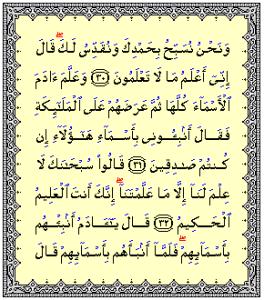 وَنَحْنُ نُسَبِّحُ بِحَمْدِكَ وَنُقَدِّسُ لَكَۖ قَالَ
إِنِّىٓ أَعْلَمُ مَا لَا تَعْلَمُونَ ﴿٣٠﴾ وَعَلَّمَ ءَادَمَ
ٱلْأَسْمَآءَ كُلَّهَا ثُمَّ عَرَضَهُمْ عَلَى ٱلْمَلَـٰٓئِكَةِ
فَقَالَ أَنۢبِـُٔونِى بِأَسْمَآءِ هَـٰٓؤُلَآءِ إِن
كُنتُمْ صَـٰدِقِينَ ﴿٣١﴾ قَالُوا۟ سُبْحَـٰنَكَ لَا
عِلْمَ لَنَآ إِلَّا مَا عَلَّمْتَنَآۖ إِنَّكَ أَنتَ ٱلْعَلِيمُ
ٱلْحَكِيمُ ﴿٣٢﴾ قَالَ يَـٰٓـَٔادَمُ أَنۢبِئْهُم
بِأَسْمَآئِهِمْۖ فَلَمَّآ أَنۢبَأَهُم بِأَسْمَآئِهِمْ قَالَ